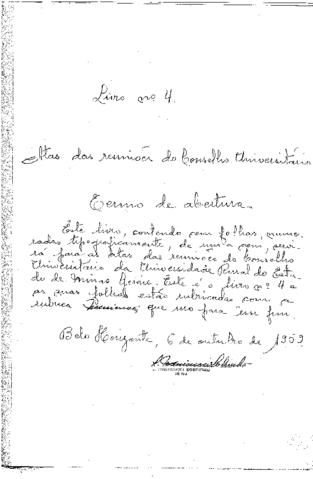 Livro nº 4.
Atas das reuniões do Conselho Universitário
Termo de abertura.
Este livro, contendo cem folhas, nume-
radas tipograficamente, de um a cem, servi-
rá para as Atas das reuniões do Conselho
Universitário da Universidade Rural do Esta-
do de Minas Gerais. Este é o livro nº 4 e
as suas folhas estão rubricadas com a
rubrica que uso para esse fim.
Belo Horizonte, 6 de outubro de 1959